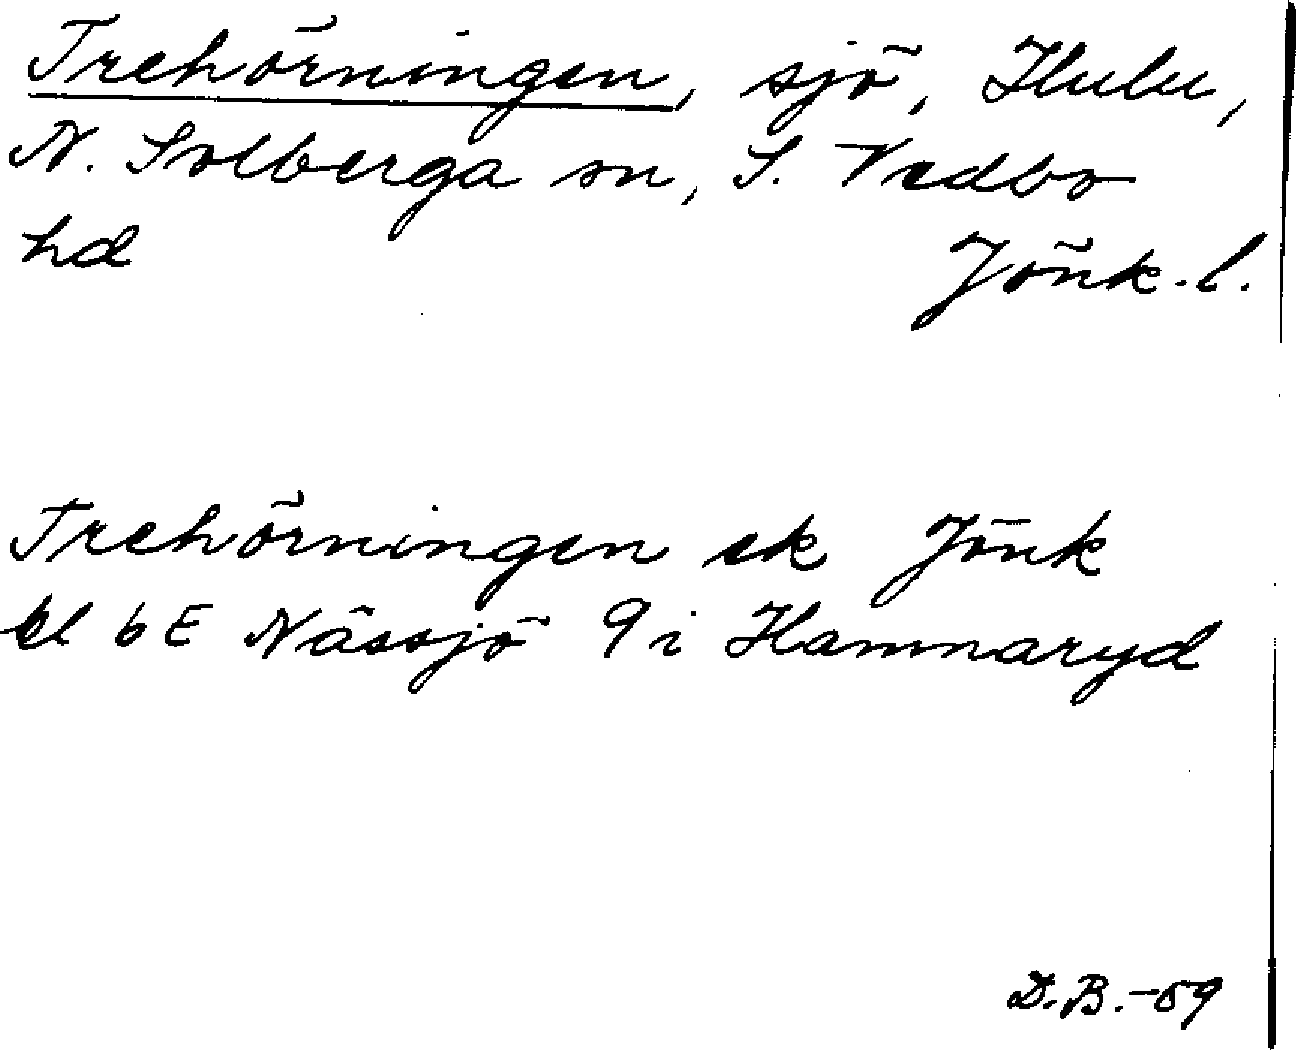 Trehörningen, sjö, Hulu,
N. Solberga sn, S. Vedbo
hd Jönk. l.
Trehörningen ek Jönk
bl 6 E Nässjö 9 i Hamnaryd
D.B.-59